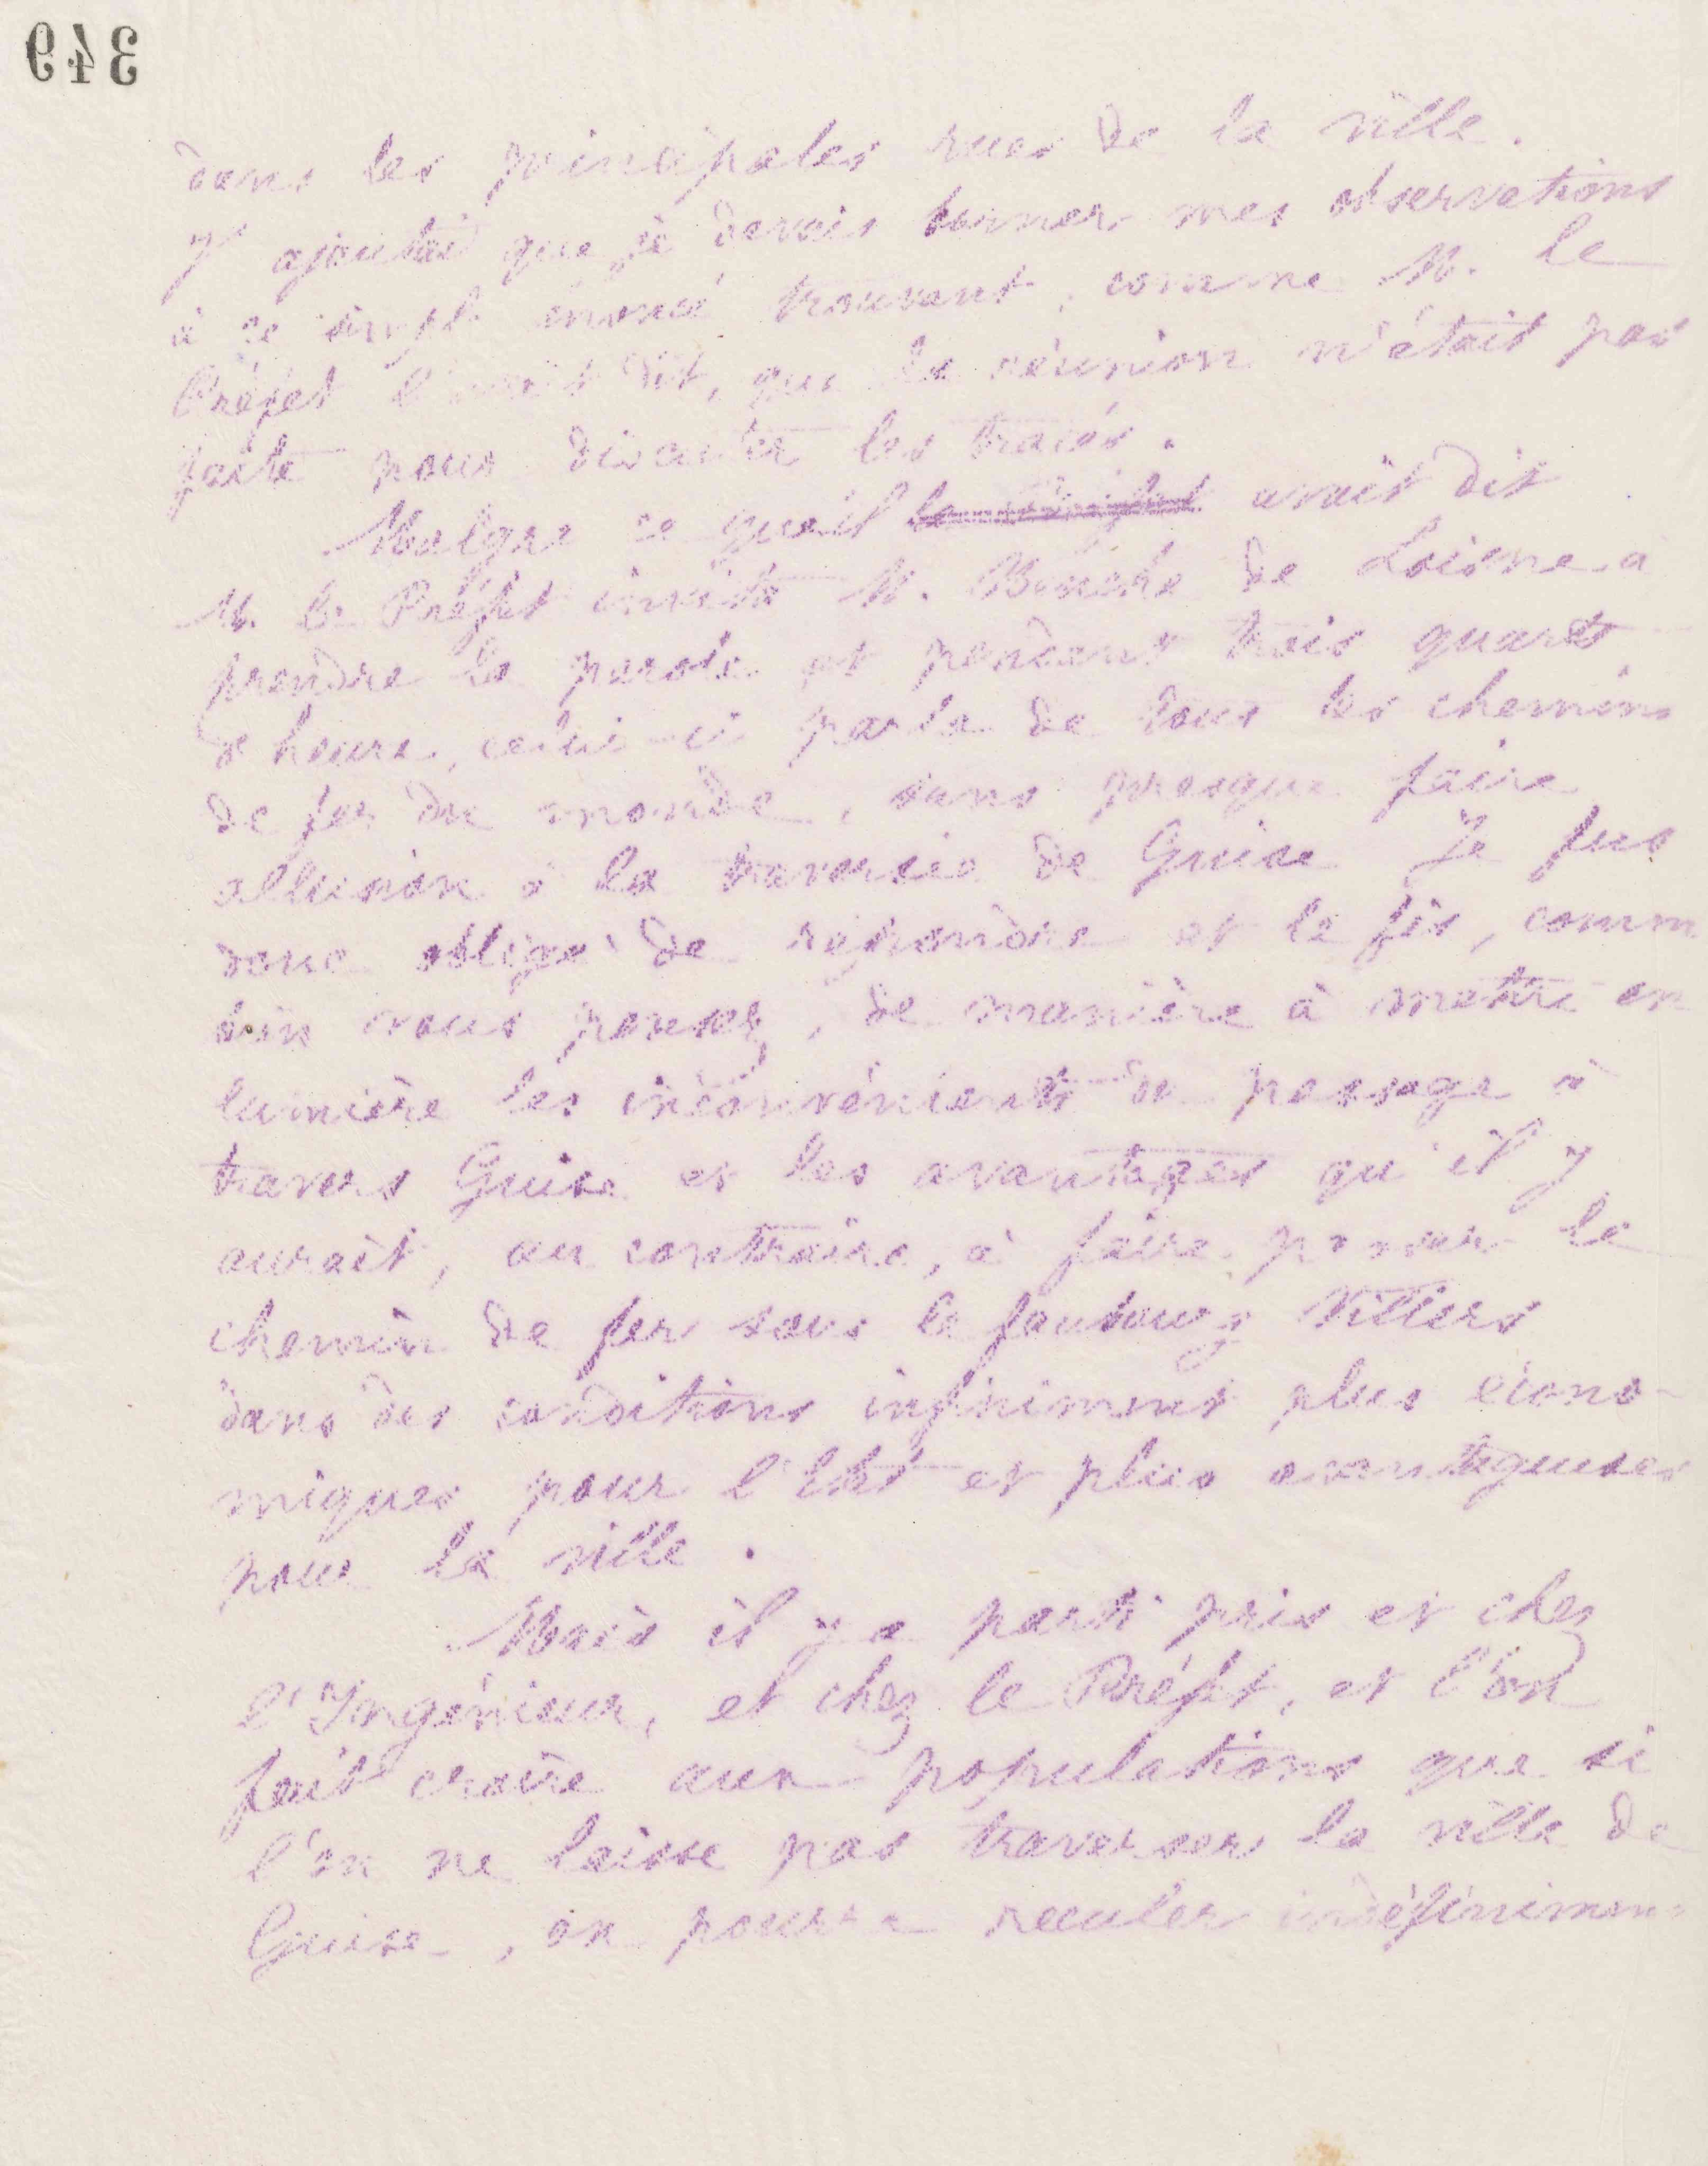 349
dans les principales rues de la ville.
J'ajoutai que je devais borner mes observations
à ce simple énoncé trouvant, comme M. le
Préfet l'avait dit, que la réunion n'était pas
faite pour discuter les tracés.
Malgré ce qu'il avait dit
M. le Préfet invita M. de Loisne a
prendre la parole et pendant trois quarts
d'heure, celui-ci parla de tous les chemins
de fer du monde, sans presque faire
allusion à la traversée de Guise Je fus
donc obligé de répondre et le fis, comm
bien vous pensez, de manière à mettre en
lumière les inconvénients du passage à
travers Guise et les avantages qu'il y
aurait, au contraire, à faire passer le
chemin de fer sous le faubourg Villiers
dans des conditions infiniment plus écono-
miques pour l'Etat et plus avantageuses
pour la ville.
Mais il y a parti pris et chez
l'Ingénieur, et chez le Préfet, et l'on
fait croire aux populations que si
l'on ne laisse pas traverser la ville de
Guise, on pourra reculer indéfiniment